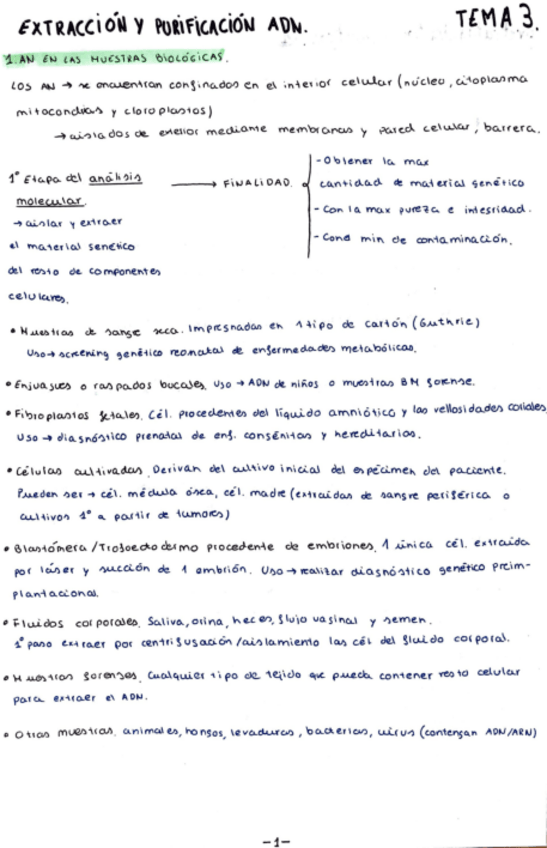 EXTRACCIÓN Y PURIFICACIÓN ADN.
TEMA 3.
1. AN EN LAS MUESTRAS BIOLÓGICAS.
LOS AN → se encuentran confinados en el interior celular (núcleo, citoplasma
mitocondrias y cloroplastos)
→ aislados de exterior mediante membranas y pared celular, barrera.
1º Etapa del análisis
molecular.
→ aislar y extraer
el material genético
del resto de componentes
celulares.
→ FINALIDAD.
- Obtener la max
cantidad de material genético
- Con la max pureza e integridad.
- Cond min de contaminación.
• Muestras de sangre seca. Impregnadas en 1 tipo de cartón (Guthrie)
Uso → screening genético neonatal de enfermedades metabólicas.
• Enjuagues o raspados bucales, Uso → ADN de niños o muestras BM forense.
• Fibroplastos fetales. Cél. procedentes del líquido amniótico y las vellosidades coriales,
Uso → diagnóstico prenatal de enf. congénitas y hereditarias.
• Células cultivadas. Derivan del cultivo inicial del espécimen del paciente.
Pueden ser → cél. médula ósea, cél. madre (extraídas de sangre periférica o
cultivos 1º a partir de tumores)
• Blastómera / Trofoectodermo procedente de embriones, 1 única cél. extraída
por láser y succión de 1 embrión. Uso → realizar diagnóstico genético preim-
plantacional.
• Fluidos corporales. Saliva, orina, heces, flujo vaginal y semen.
1º paso extraer por centrifugación/aislamiento las cél del fluido corporal.
• Muestras forenses. Cualquier tipo de tejido que pueda contener resto celular
para extraer el ADN.
• Otras muestras. animales, hongos, levaduras, bacterias, virus (contengan ADN/ARN)
-1-